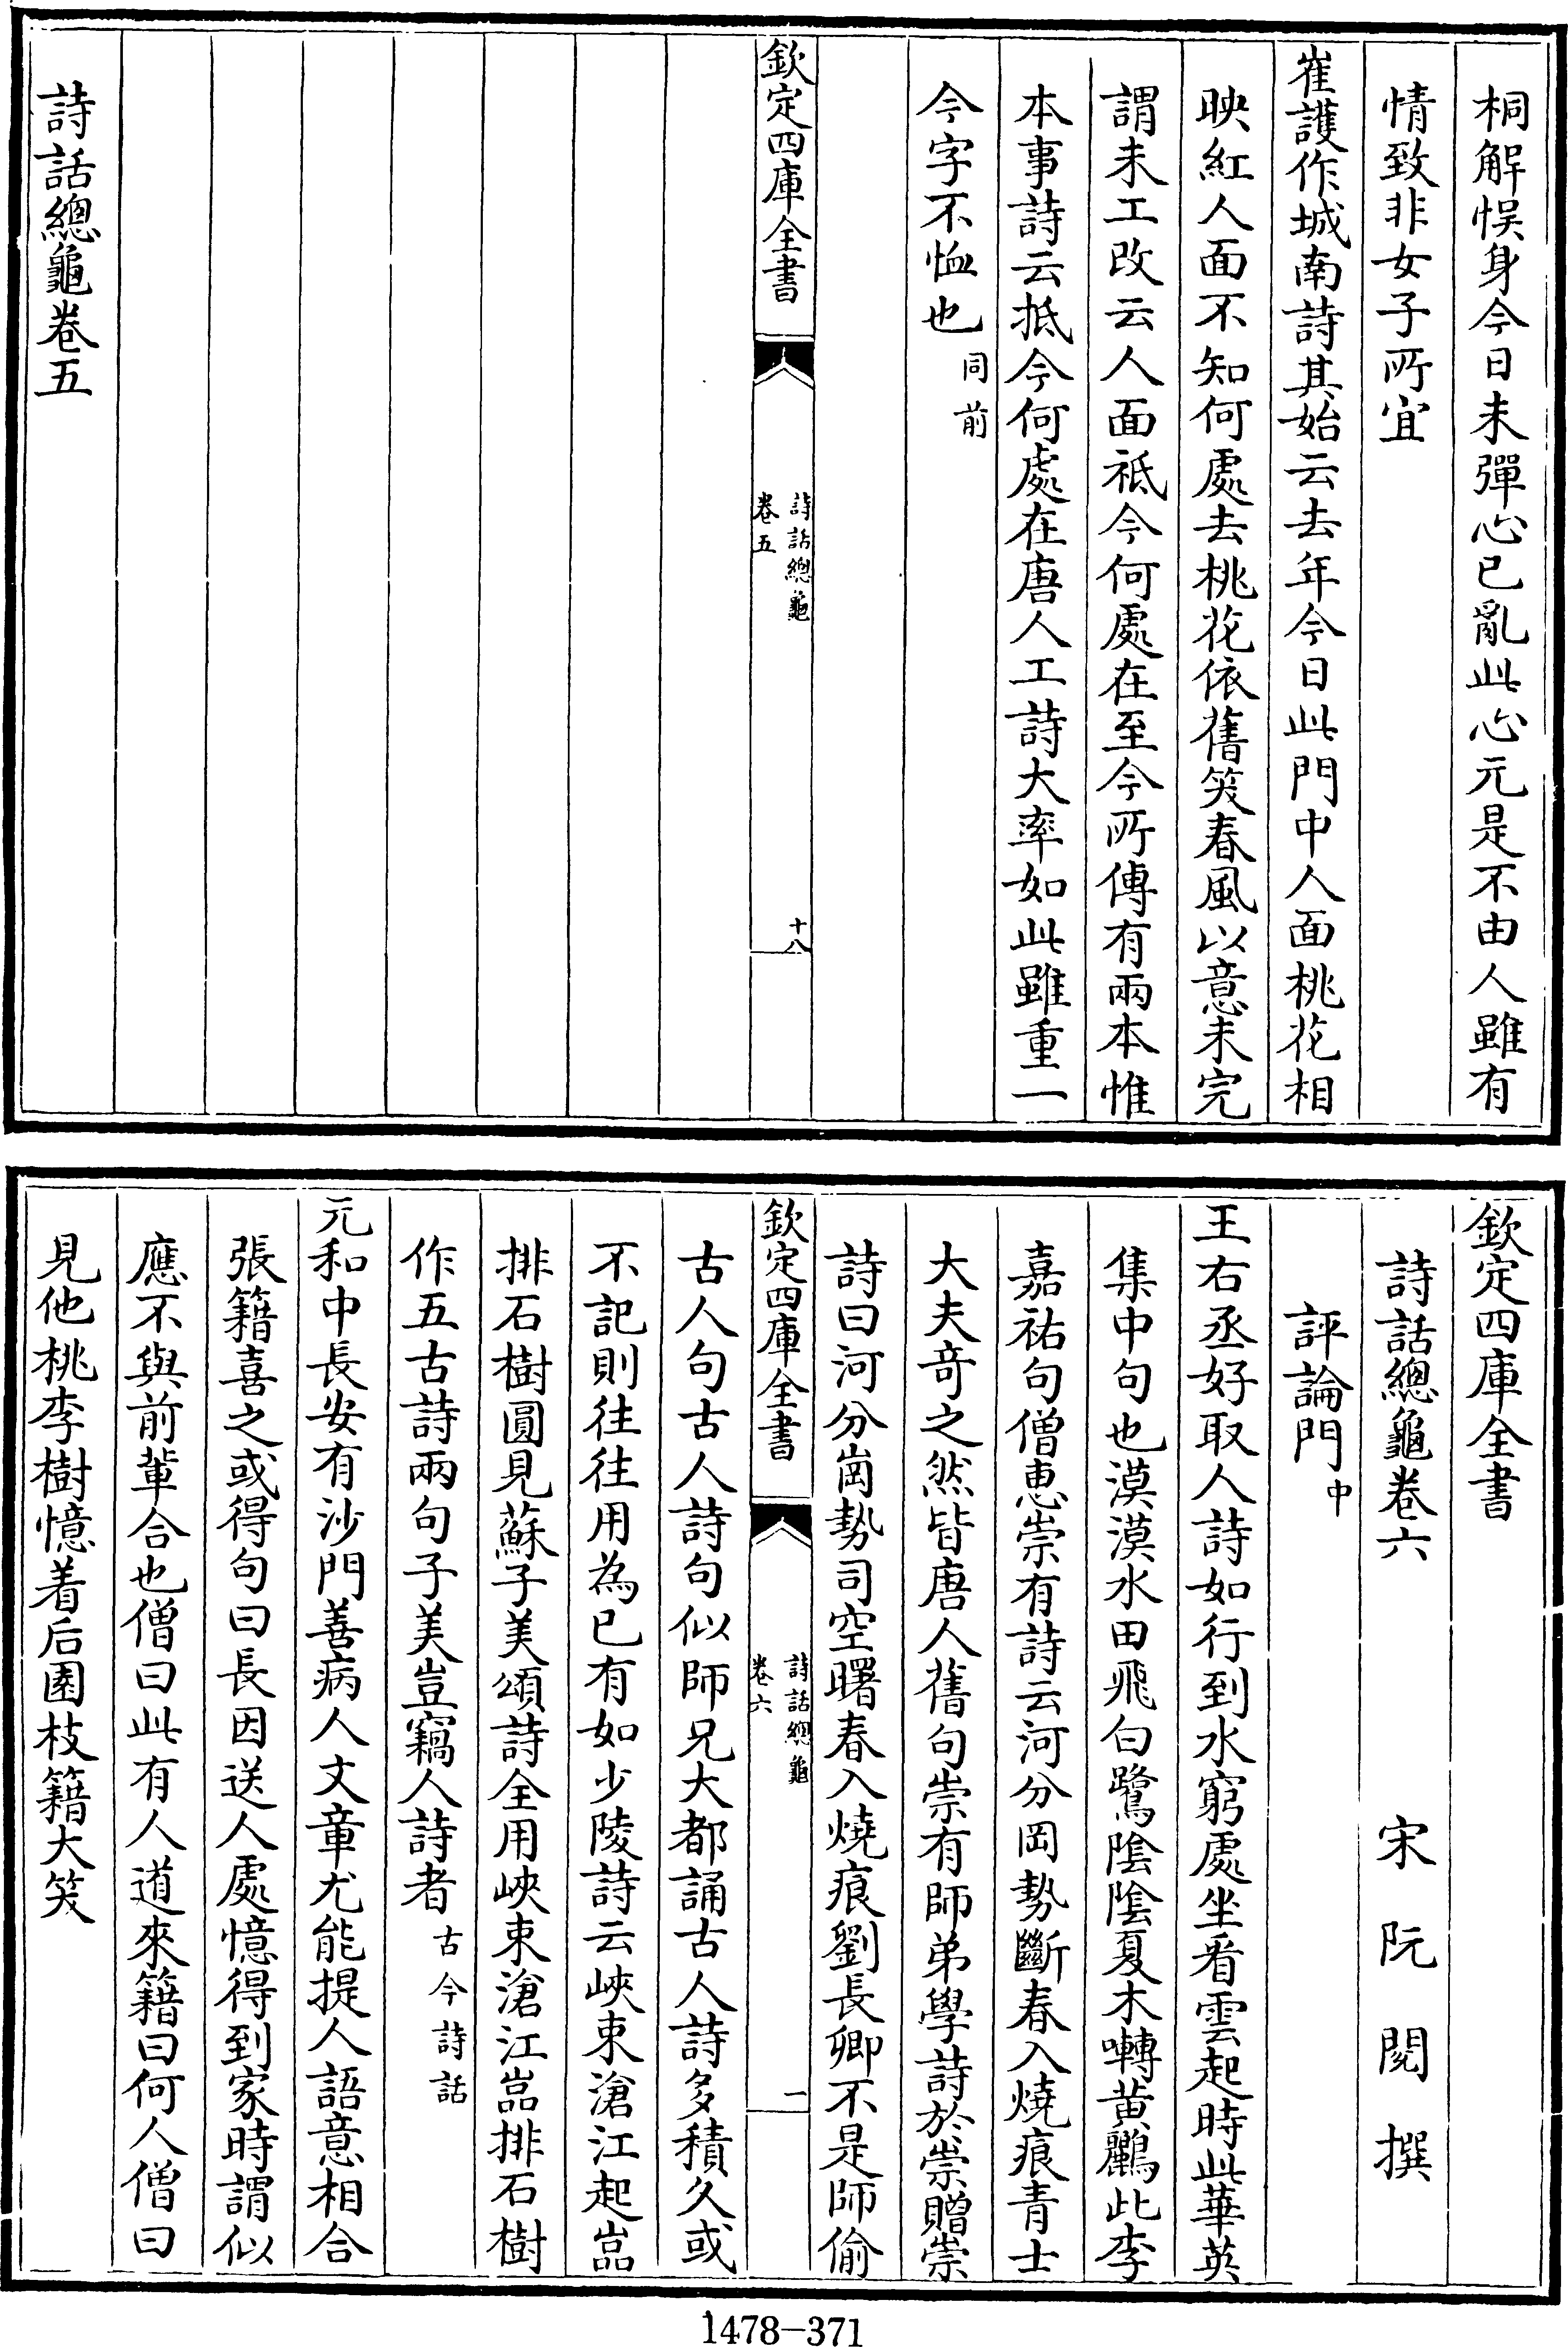 桐解悮身今日未彈心已亂此心元是不由人雖有
情致非女子所宜
崔護作城南詩其始云去年今日此門中人面桃花相
映紅人面不知何處去桃花依舊笑春風以意未完
謂未工改云人面祗今何處在至今所傳有兩本惟
本事詩云抵今何處在唐人工詩大率如此雖重一
今字不恤也同前
欽定四庫全書
詩話總龜
卷五
十八
詩話總龜卷五
欽定四庫全書
詩話總龜卷六
宋阮閱撰
評論門中
王右丞好取人詩如行到水窮處坐看雲起時此華英
集中句也漠漠水田飛白鷺陰陰夏木囀黃鸝此李
嘉祐句僧惠崇有詩云河分岡勢斷春入燒痕青士
大夫奇之然皆唐人舊句崇有師弟學詩於崇贈崇
詩曰河分崗勢司空曙春入燒痕劉長卿不是師偷
欽定四庫全書
詩話總龜
卷六
一
古人句古人詩句似師兄大都誦古人詩多積久或
不記則往往用為已有如少陵詩云峽束滄江起嵓
排石樹圓見蘇子美頌詩全用峽束滄江嵓排石樹
作五古詩兩句子美豈竊人詩者古今詩話
元和中長安有沙門善病人文章尤能提人語意相合
張籍喜之或得句曰長因送人處憶得到家時謂似
應不與前輩合也僧曰此有人道來籍曰何人僧曰
見他桃李樹憶着后園枝籍大笑
1478-371